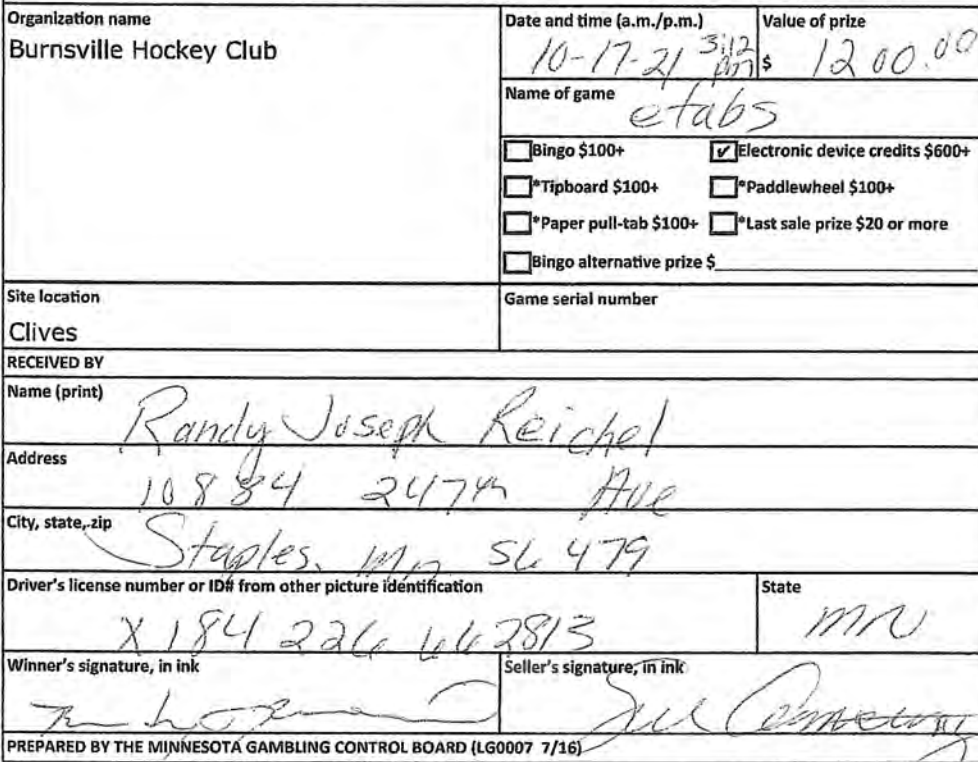 Organization name
Burnsville Hockey Club
Date and time (a.m./p.m.)
10-17-21 3:12 pm
Value of prize
$ 1200.00
Name of game
etabs
Bingo $100+
✔ Electronic device credits $600+
*Tipboard $100+
*Paddlewheel $100+
*Paper pull-tab $100+
*Last sale prize $20 or more
Bingo alternative prize $
Site location
Clives
Game serial number
RECEIVED BY
Name (print)
Randy Joseph Reichel
Address
10884 247th Ave
City, state, zip
Staples, Mn 56479
Driver's license number or ID# from other picture identification
X 184 226 662813
State
MN
Winner's signature, in ink
Seller's signature, in ink
PREPARED BY THE MINNESOTA GAMBLING CONTROL BOARD (LG0007 7/16)